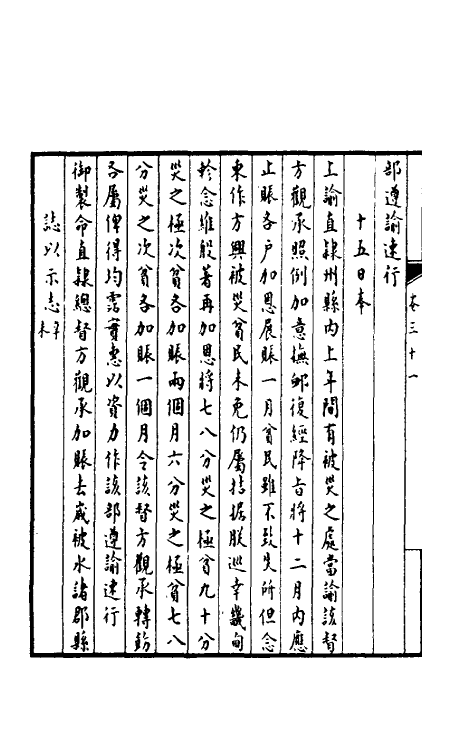 部遵諭速行
十五日奉
上諭直隸州縣內上年間有被災之處當諭該督
方觀承照例加意撫卹復經降旨將十二月內應
止賑各戶加恩展賑一月貧民雖不致失所但念
東作方興被災貧民未免仍屬拮据朕巡幸畿甸
軫念維殷著再加恩將七八分災之極貧九十分
災之極次貧各加賑兩個月六分災之極貧七八
分災之次貧各加賑一個月令該督方觀承轉飭
各屬俾得均霑實惠以資力作該部遵諭速行
御製命直隸總督方觀承加賑去歲被水諸郡縣
誌以示志辛
未
卷三十一